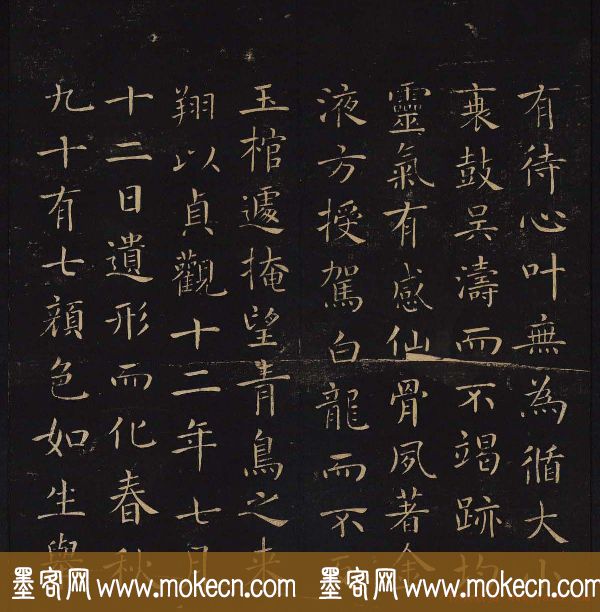 有待心叶無為循大小
襄鼓吴濤而不竭跡均
靈氣有感仙骨夙著金
液方授駕白龍而不
玉棺遽掩望青鳥之来
翔以貞觀十二年七月
十二日遺形而化春秋
九十有七顔色如生舉
墨客网 www.mokecn.com 墨客网 www.mokecn.com